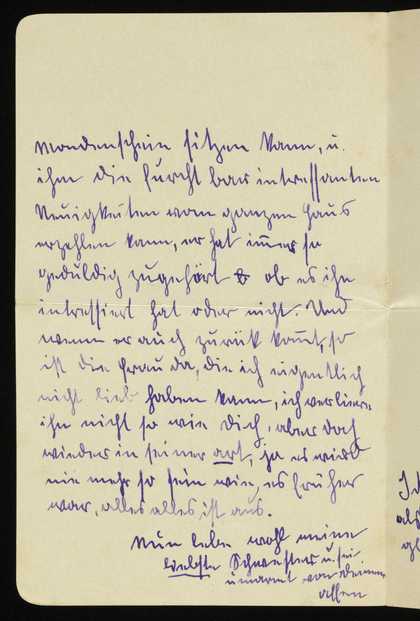 Mondenschein sitzen kann, u.
ihm die furchtbar intressanten
Neuigkeiten vom ganzen Haus
erzehlen kann, er hat immer so
geduldig zugehört ob es ihn
intressiert hat oder nicht. Und
wenn er auch zurük komt, so
ist die Frau da, die ich eigentlich
nicht lieb haben kann, ich verliere
ihn nicht so wie dich, aber doch
wieder in seiner art, ja es wird
nie mehr so sein wie, es früher
war, alles alles ist aus.
Nun lebe wohl meine
liebste Schwester u. sei
umarmt von deinem
I
als
gl